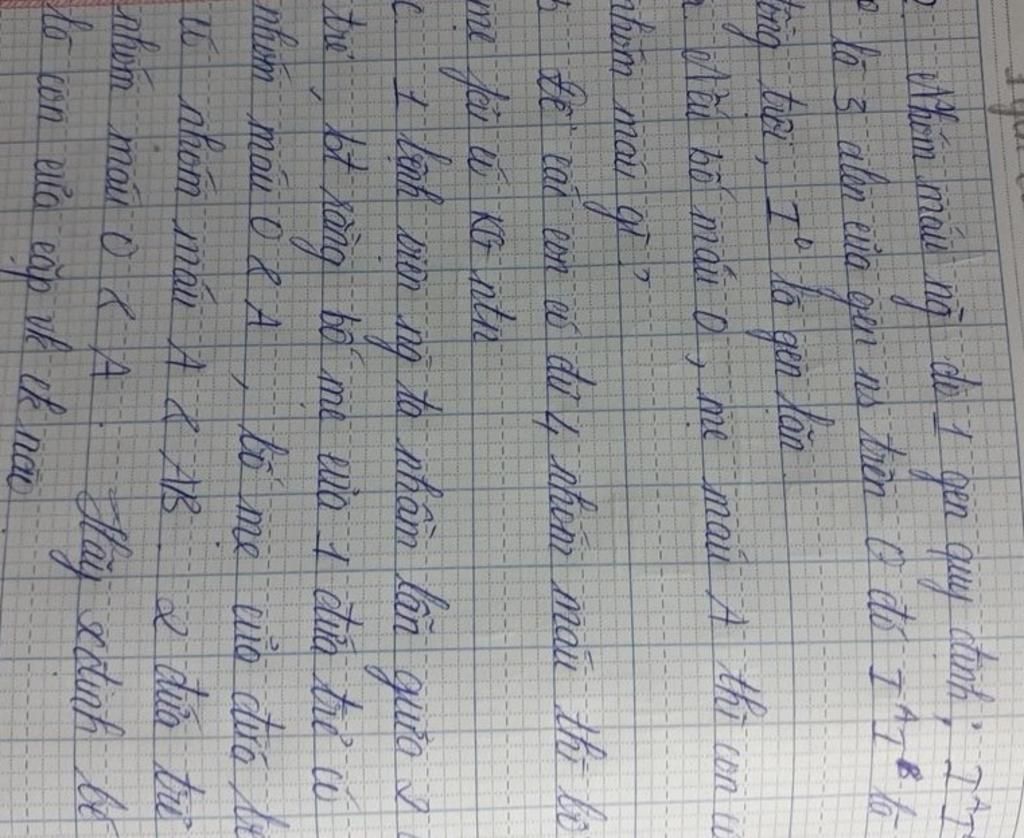 Nhóm máu ng do 1 gen quy định, I^A I
là 3 alen của gen ns trên đó I^A I^B là
trội, I^O là gen lặn
Nếu bố máu O, mẹ máu A thì con
nhóm máu gì?
Để các con có đủ 4 nhóm máu thì bố
mẹ fải có KG ntn
1 bệnh viện ng ta nhầm lẫn giữa 2
trẻ, bt rằng bố mẹ của 1 đứa trẻ có
nhóm máu O & A, bố mẹ của đứa
có nhóm máu A & AB. 2 đứa trẻ
nhóm máu O & A. Hãy xđịnh
con của cặp vk ck nào